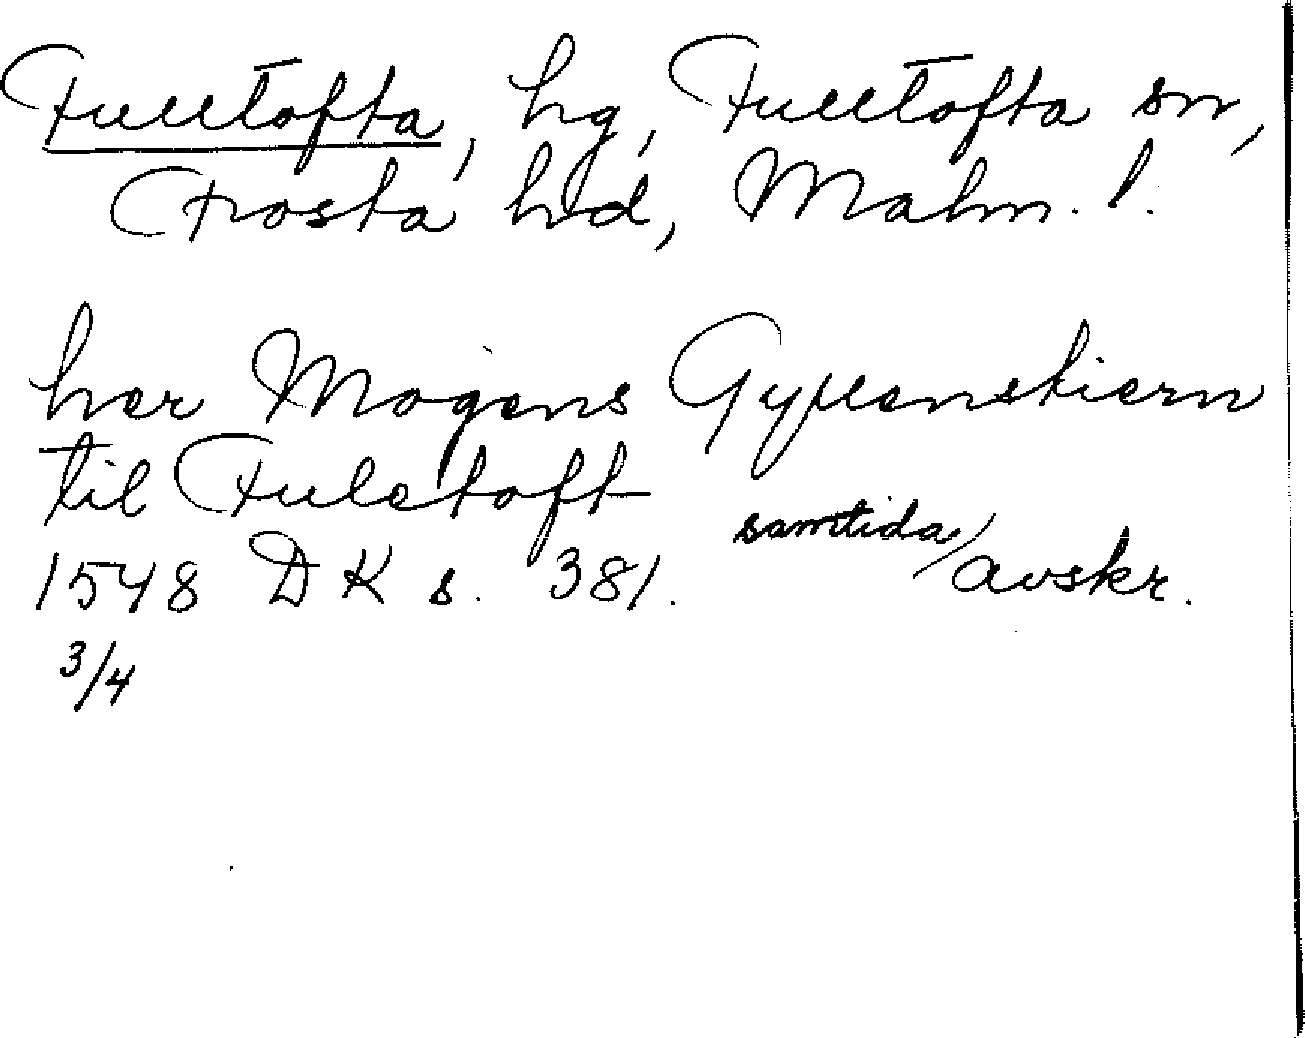 Fulltofta, hg, Fulltofta sn,
Frosta hd, Malm. l.
her Mogens Gyllenstiern
til Fuletoft
1548 DK s. 381. samtida/avskr.
3/4